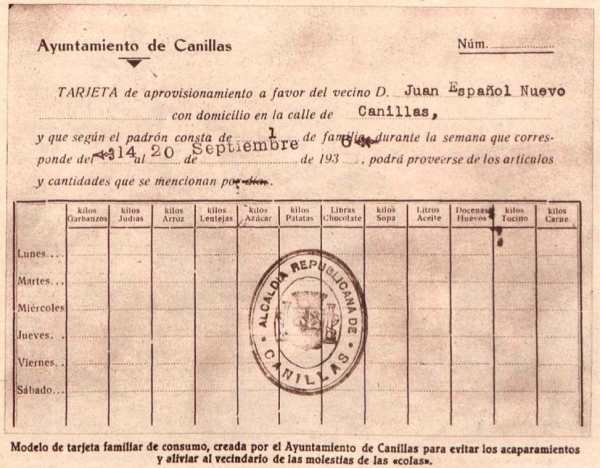 Ayuntamiento de Canillas
Núm.
TARJETA de aprovisionamiento a favor del vecino D. Juan Español Nuevo
con domicilio en la calle de Canillas,
y que según el padrón consta de 1 de familia, durante la semana que corres-
ponde del 14 al 20 de Septiembre de 1936, podrá proveerse de los artículos
y cantidades que se mencionan por día.
kilos Garbanzos kilos Judías kilos Arroz kilos Lentejas kilos Azúcar kilos Patatas Libras Chocolate kilos Sopa Litros Aceite Docenas Huevos kilos Tocino kilos Carne
Lunes...
Martes...
Miércoles
Jueves...
Viernes...
Sábado...
ALCALDIA REPUBLICANA DE
CANILLAS
Modelo de tarjeta familiar de consumo, creada por el Ayuntamiento de Canillas para evitar los acaparamientos
y aliviar al vecindario de las molestias de las «colas».